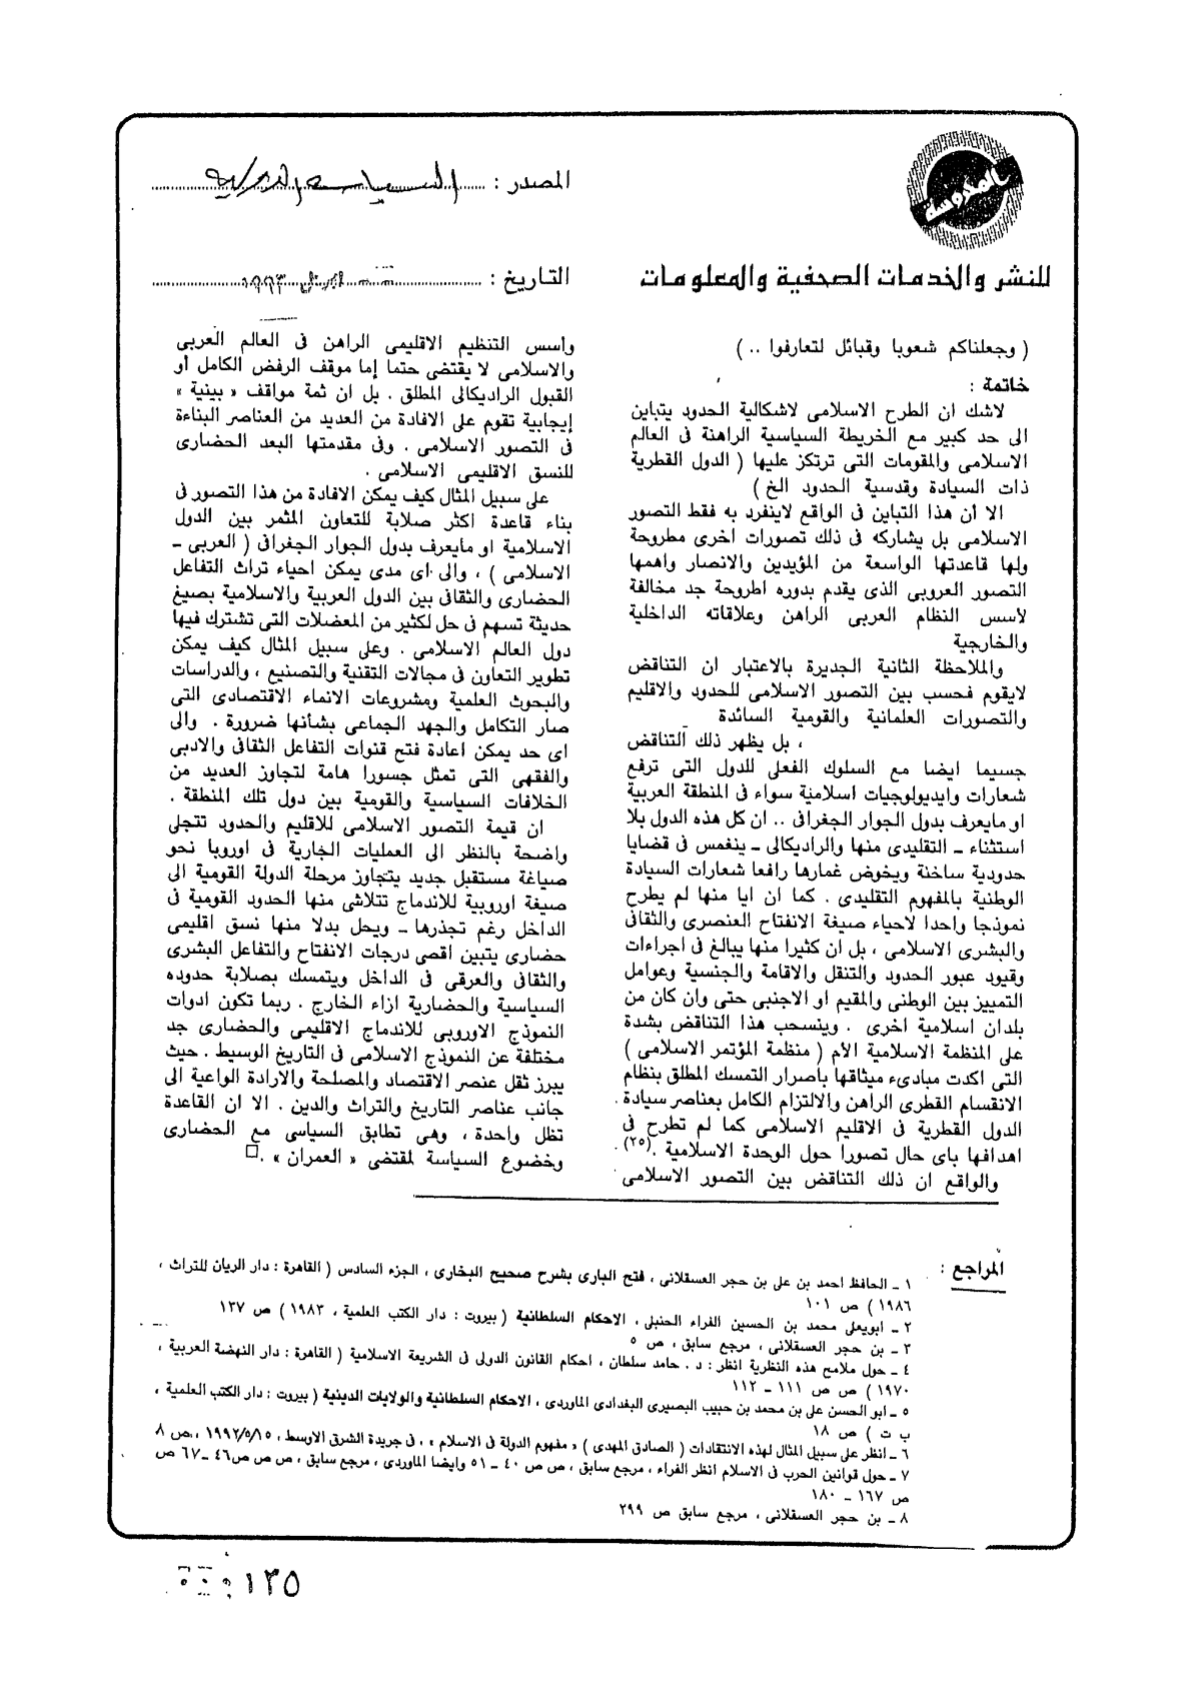 المصدر : السياسة الدولية
بالمحروسة
للنشر والخدمات الصحفية والمعلومات
التاريخ : ابريل ١٩٩٣
( وجعلناكم شعوبا وقبائل لتعارفوا .. )
خاتمة :
لاشك ان الطرح الاسلامى لاشكالية الحدود يتباين
الى حد كبير مع الخريطة السياسية الراهنة فى العالم
الاسلامى والمقومات التى ترتكز عليها ( الدول القطرية
ذات السيادة وقدسية الحدود الخ )
الا أن هذا التباين فى الواقع لاينفرد به فقط التصور
الاسلامى بل يشاركه فى ذلك تصورات اخرى مطروحة
ولها قاعدتها الواسعة من المؤيدين والانصار واهمها
التصور العروبى الذى يقدم بدوره اطروحة جد مخالفة
لاسس النظام العربى الراهن وعلاقاته الداخلية
والخارجية
والملاحظة الثانية الجديرة بالاعتبار ان التناقض
لايقوم فحسب بين التصور الاسلامى للحدود والاقليم
والتصورات العلمانية والقومية السائدة
، بل يظهر ذلك التناقض
جسيما ايضا مع السلوك الفعلى للدول التى ترفع
شعارات وايديولوجيات اسلامية سواء فى المنطقة العربية
او مايعرف بدول الجوار الجغرافى .. ان كل هذه الدول بلا
استثناء ـ التقليدى منها والراديكالى ـ ينغمس فى قضايا
حدودية ساخنة ويخوض غمارها رافعا شعارات السيادة
الوطنية بالمفهوم التقليدى . كما ان ايا منها لم يطرح
نموذجا واحدا لاحياء صيغة الانفتاح العنصرى والثقافى
والبشرى الاسلامى ، بل ان كثيرا منها يبالغ فى اجراءات
وقيود عبور الحدود والتنقل والاقامة والجنسية وعوامل
التمييز بين الوطنى والمقيم او الاجنبى حتى وان كان من
بلدان اسلامية اخرى . وينسحب هذا التناقض بشدة
على المنظمة الاسلامية الأم ( منظمة المؤتمر الاسلامى )
التى اكدت مبادىء ميثاقها بأصرار التمسك المطلق بنظام
الانقسام القطرى الراهن والالتزام الكامل بعناصر سيادة
الدول القطرية فى الاقليم الاسلامى كما لم تطرح فى
اهدافها باى حال تصورا حول الوحدة الاسلامية .(٢٥)
والواقع ان ذلك التناقض بين التصور الاسلامى
وأسس التنظيم الاقليمى الراهن فى العالم العربى
والاسلامى لا يقتضى حتما إما موقف الرفض الكامل أو
القبول الراديكالى المطلق . بل ان ثمة مواقف « بينية »
إيجابية تقوم على الافادة من العديد من العناصر البناءة
فى التصور الاسلامى . وفى مقدمتها البعد الحضارى
للنسق الاقليمى الاسلامى .
على سبيل المثال كيف يمكن الافادة من هذا التصور فى
بناء قاعدة اكثر صلابة للتعاون المثمر بين الدول
الاسلامية او مايعرف بدول الجوار الجغرافى ( العربى ـ
الاسلامى ) ، والى اى مدى يمكن احياء تراث التفاعل
الحضارى والثقافى بين الدول العربية والاسلامية بصيغ
حديثة تسهم فى حل لكثير من المعضلات التى تشترك فيها
دول العالم الاسلامى . وعلى سبيل المثال كيف يمكن
تطوير التعاون فى مجالات التقنية والتصنيع ، والدراسات
والبحوث العلمية ومشروعات الانماء الاقتصادى التى
صار التكامل والجهد الجماعى بشأنها ضرورة . والى
اى حد يمكن اعادة فتح قنوات التفاعل الثقافى والادبى
والفقهى التى تمثل جسورا هامة لتجاوز العديد من
الخلافات السياسية والقومية بين دول تلك المنطقة .
ان قيمة التصور الاسلامى للاقليم والحدود تتجلى
واضحة بالنظر الى العمليات الجارية فى اوروبا نحو
صياغة مستقبل جديد يتجاوز مرحلة الدولة القومية الى
صيغة اوروبية للاندماج تتلاشى منها الحدود القومية فى
الداخل رغم تجذرها ـ ويحل بدلا منها نسق اقليمى
حضارى يتبين اقصى درجات الانفتاح والتفاعل البشرى
والثقافى والعرقى فى الداخل ويتمسك بصلابة حدوده
السياسية والحضارية ازاء الخارج . ربما تكون ادوات
النموذج الاوروبى للاندماج الاقليمى والحضارى جد
مختلفة عن النموذج الاسلامى فى التاريخ الوسيط . حيث
يبرز ثقل عنصر الاقتصاد والمصلحة والارادة الواعية الى
جانب عناصر التاريخ والتراث والدين . الا ان القاعدة
تظل واحدة ، وهى تطابق السياسى مع الحضارى
وخضوع السياسة لمقتضى « العمران » .□
المراجع :
١ ـ الحافظ احمد بن على بن حجر العسقلانى ، فتح البارى بشرح صحيح البخارى ، الجزء السادس ( القاهرة : دار الريان للتراث ،
١٩٨٦ ) ص ١٠١
٢ ـ ابويعلى محمد بن الحسين الفراء الحنبلى ، الاحكام السلطانية ( بيروت : دار الكتب العلمية ، ١٩٨٣ ) ص ١٣٧
٣ ـ بن حجر العسقلانى ، مرجع سابق ، ص ٥
٤ ـ حول ملامح هذه النظرية انظر : د . حامد سلطان ، احكام القانون الدولى فى الشريعة الاسلامية ( القاهرة : دار النهضة العربية ،
١٩٧٠ ) ص ص ١١١ ـ ١١٢
٥ ـ ابو الحسن على بن محمد بن حبيب البصيرى البغدادى الماوردى ، الاحكام السلطانية والولايات الدينية ( بيروت : دار الكتب العلمية ،
ب ت ) ص ١٨
٦ ـ انظر على سبيل المثال لهذه الانتقادات ( الصادق المهدى ) « مفهوم الدولة فى الاسلام » ، فى جريدة الشرق الاوسط ، ١٩٩٢/٥/١٥ ، ص ٨
٧ ـ حول قوانين الحرب فى الاسلام انظر الفراء ، مرجع سابق ، ص ص ٤٠ ـ ٥١ وايضا الماوردى ، مرجع سابق ، ص ص ص ٤٦ ـ ٦٧ ص
ص ١٦٧ ـ ١٨٠
٨ ـ بن حجر العسقلانى ، مرجع سابق ص ٢٩٩
١٣٥